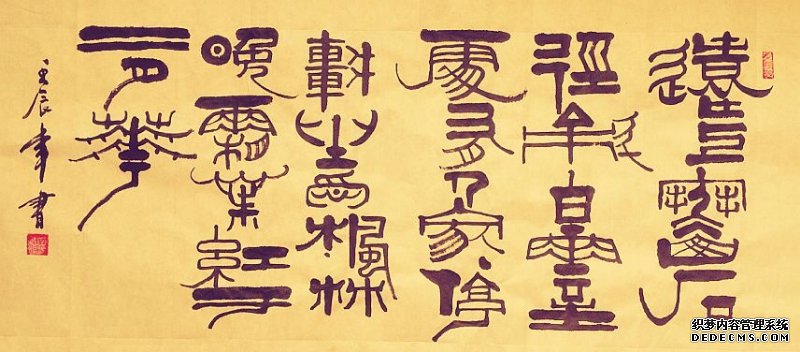 遠上寒山石
徑斜白雲生
處有人家停
車坐愛楓林
晚霜葉紅于
二月華
壬辰年書
织梦内容管理系统
DEDECMS.COM